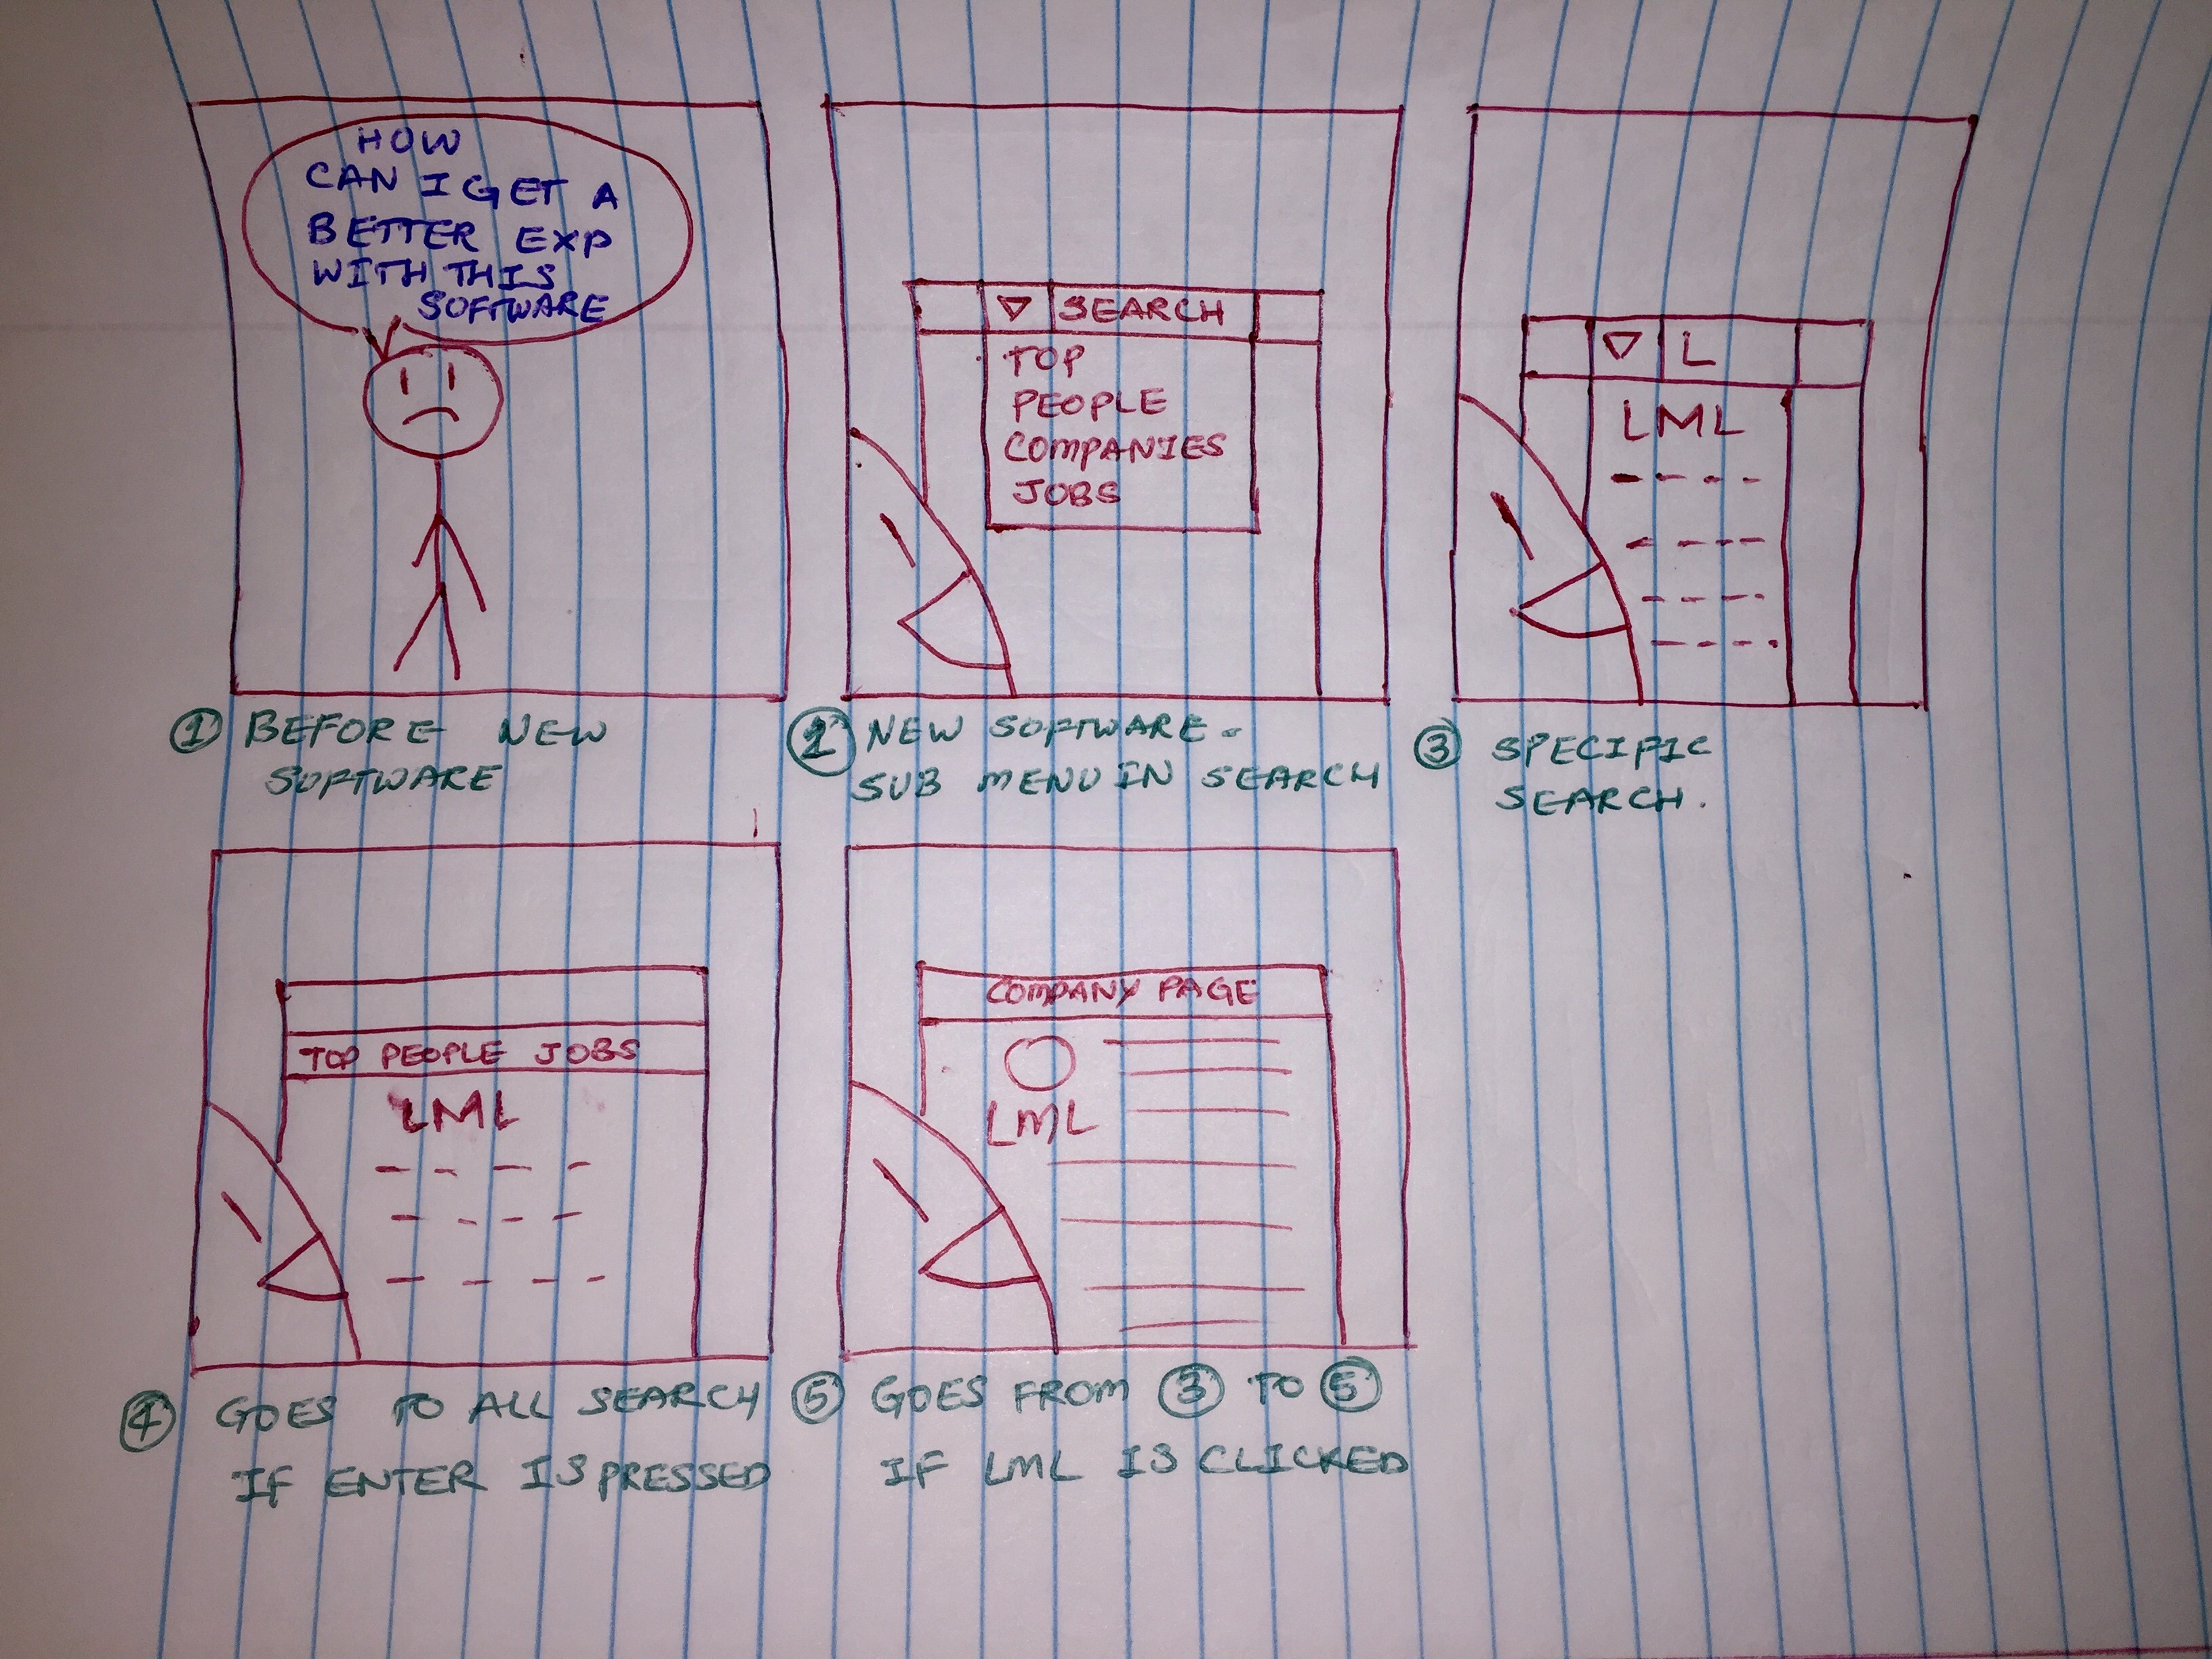 HOW
CAN I GET A
BETTER EXP
WITH THIS
SOFTWARE
① BEFORE NEW
SOFTWARE
▽ SEARCH
TOP
PEOPLE
COMPANIES
JOBS
② NEW SOFTWARE -
SUB MENU IN SEARCH
▽ L
LML
③ SPECIFIC
SEARCH.
TOP PEOPLE JOBS
LML
④ GOES TO ALL SEARCH
IF ENTER IS PRESSED
COMPANY PAGE
LML
⑤ GOES FROM ③ TO ⑤
IF LML IS CLICKED